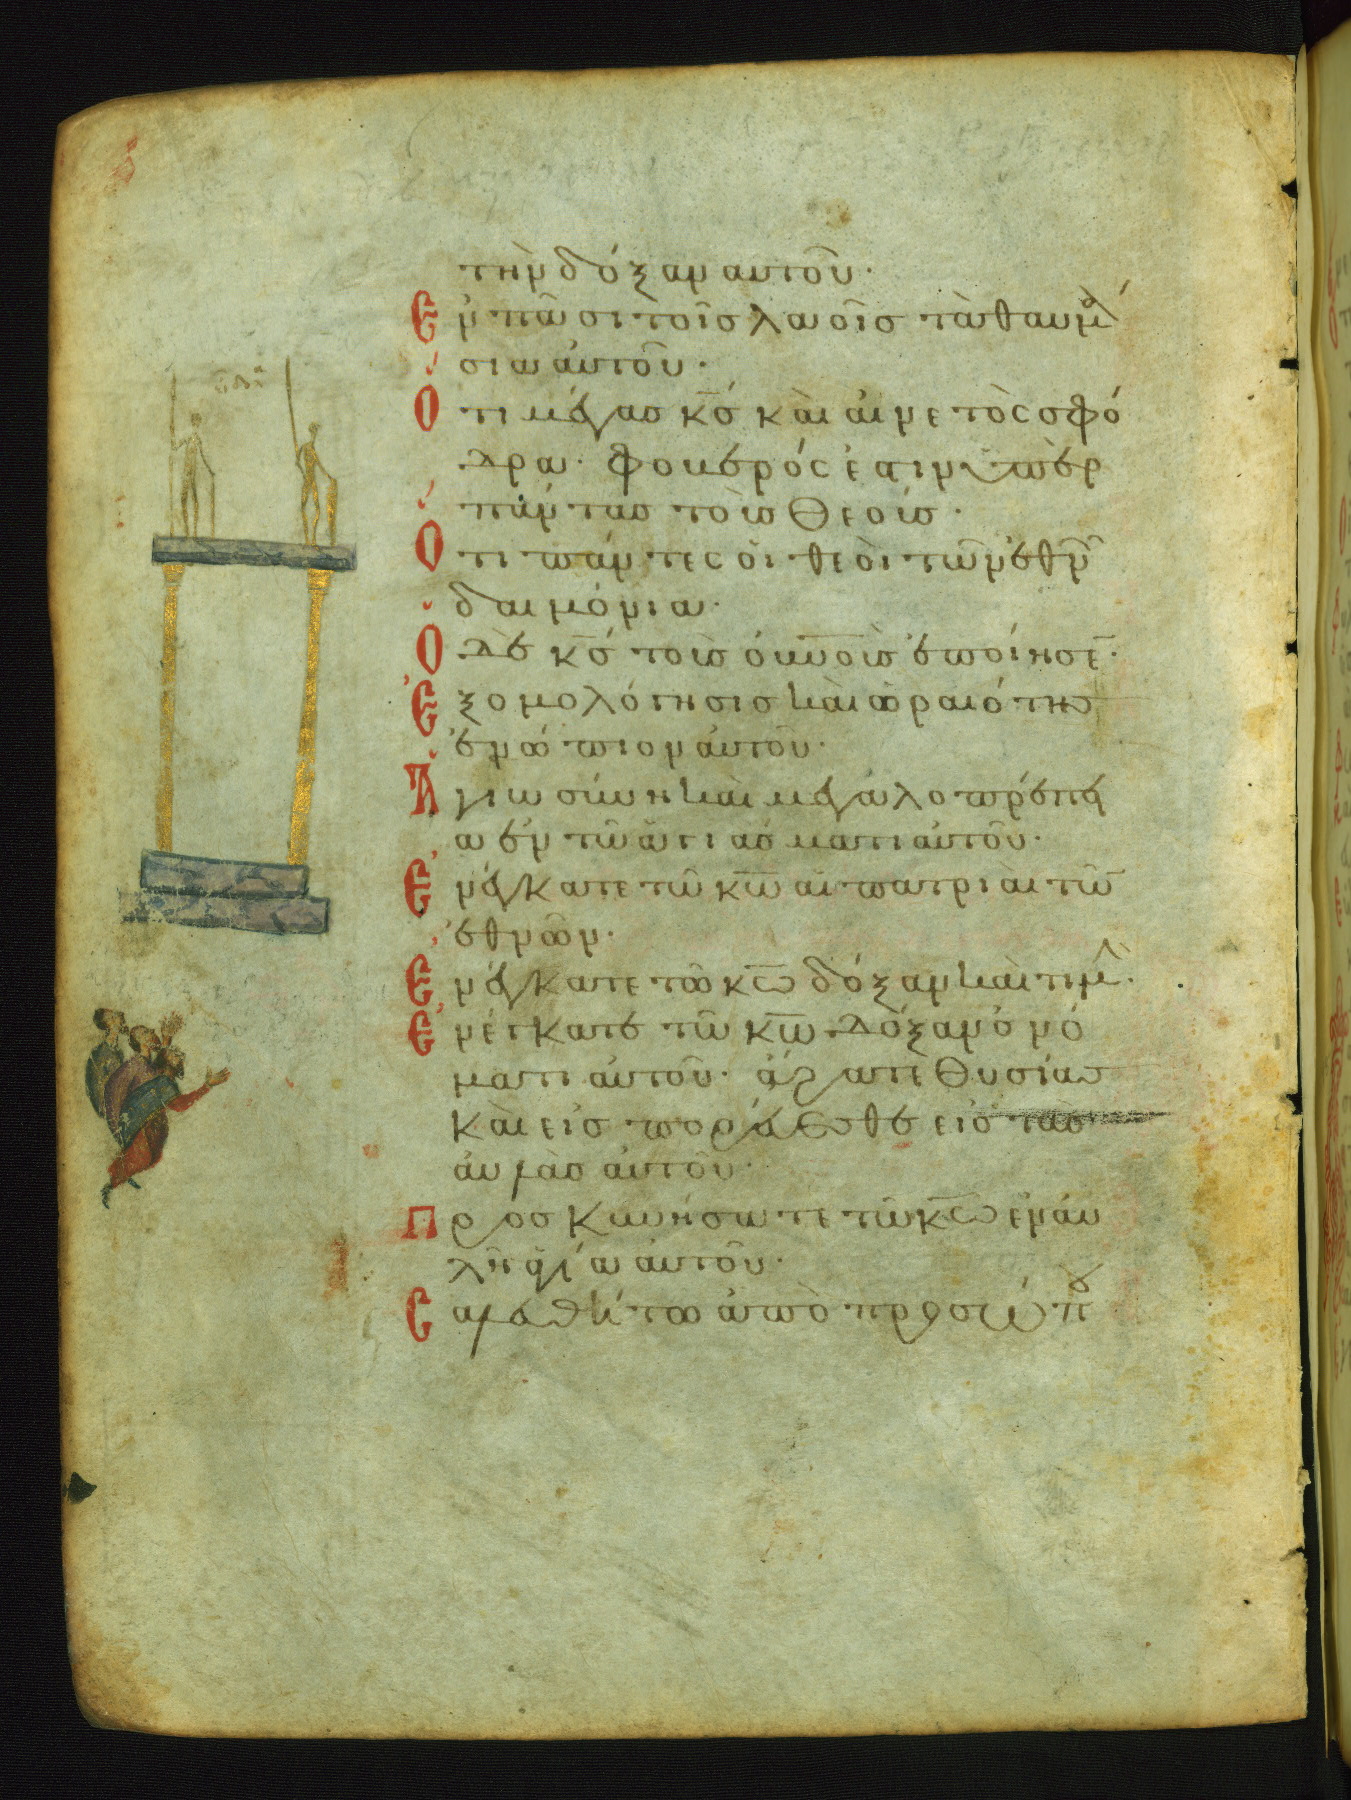 τὴν δόξαν αυτοῦ·
Ἐν πᾶσι τοῖσ λαοῖσ τὰ θαυμά
σια ἀυτοῦ·
Ὅτι μέγασ κ̅σ̅ κὰι ἀινετὸς σφό
δρα· φοβερός ἐστιν ὑπὲρ
πάντασ τοὺσ θεούσ·
Ὅτι πάντες ὁι θεὸι τῶν ἐθν
δαιμόνια·
Ὁ δὲ κ̅σ̅ τοὺσ ὀυ̅νοὺσ ἐποίησε̅·
Ἐξομολόγησισ κὰι ὡραιότησ
ἐνώπιον ἀυτοῦ·
Ἁγιωσύνη κὰι μεγαλοπρέπει
α ἐν τῶ ἁγιάσματι ἀυτοῦ·
Ἐνέγκατε τῶ κ̅ω̅ ἁι πατριὰι τῶ̅
ἐθνῶν·
Ἐνέγκατε τῶ κ̅ω̅ δόξαν κὰι τιμὴ·
Ἐνέγκατε τῶ κ̅ω̅ δόξαν ὀνό
ματι ἀυτοῦ· ἄρατε θυσίασ
κὰι εἰσπορέυεσθε εἰσ τὰσ
ἀυλὰσ ἀυτοῦ·
Προσκυνήσατε τῶ κ̅ω̅ ἐν ἀυ
λῆ ἁγία ἀυτοῦ·
Σαλευθήτω ἀπὸ προσώπου